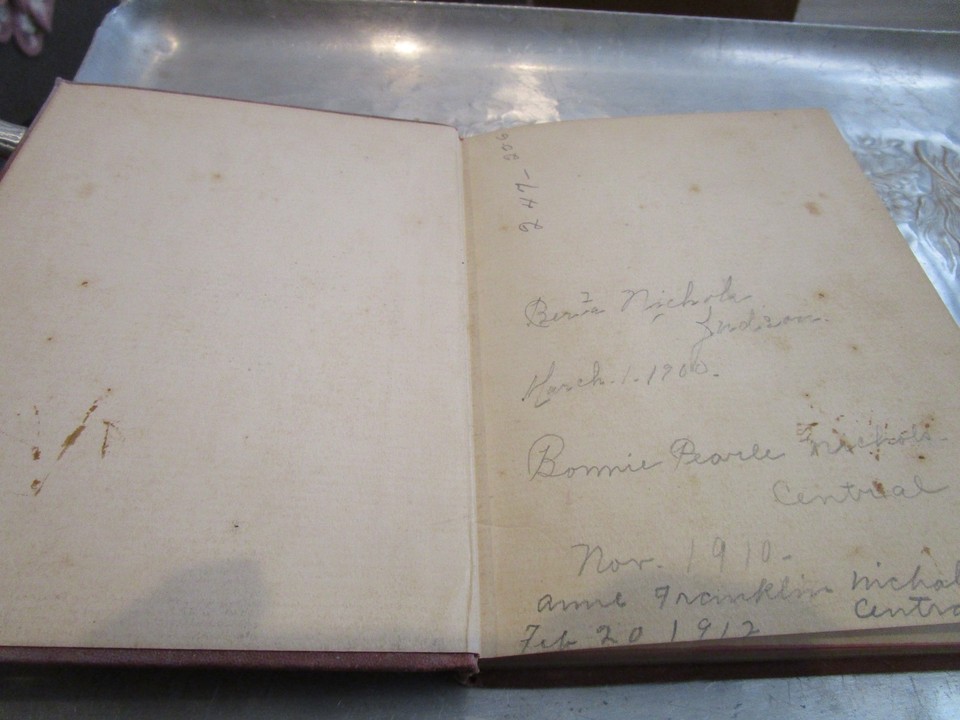 247-206
Nichols
Judson.
March. 1. 1900.
Bonnie Pearle Nichols.
Central
Nov. 1910.
Anne Franklin Nichol
Centra
Feb 20 1912